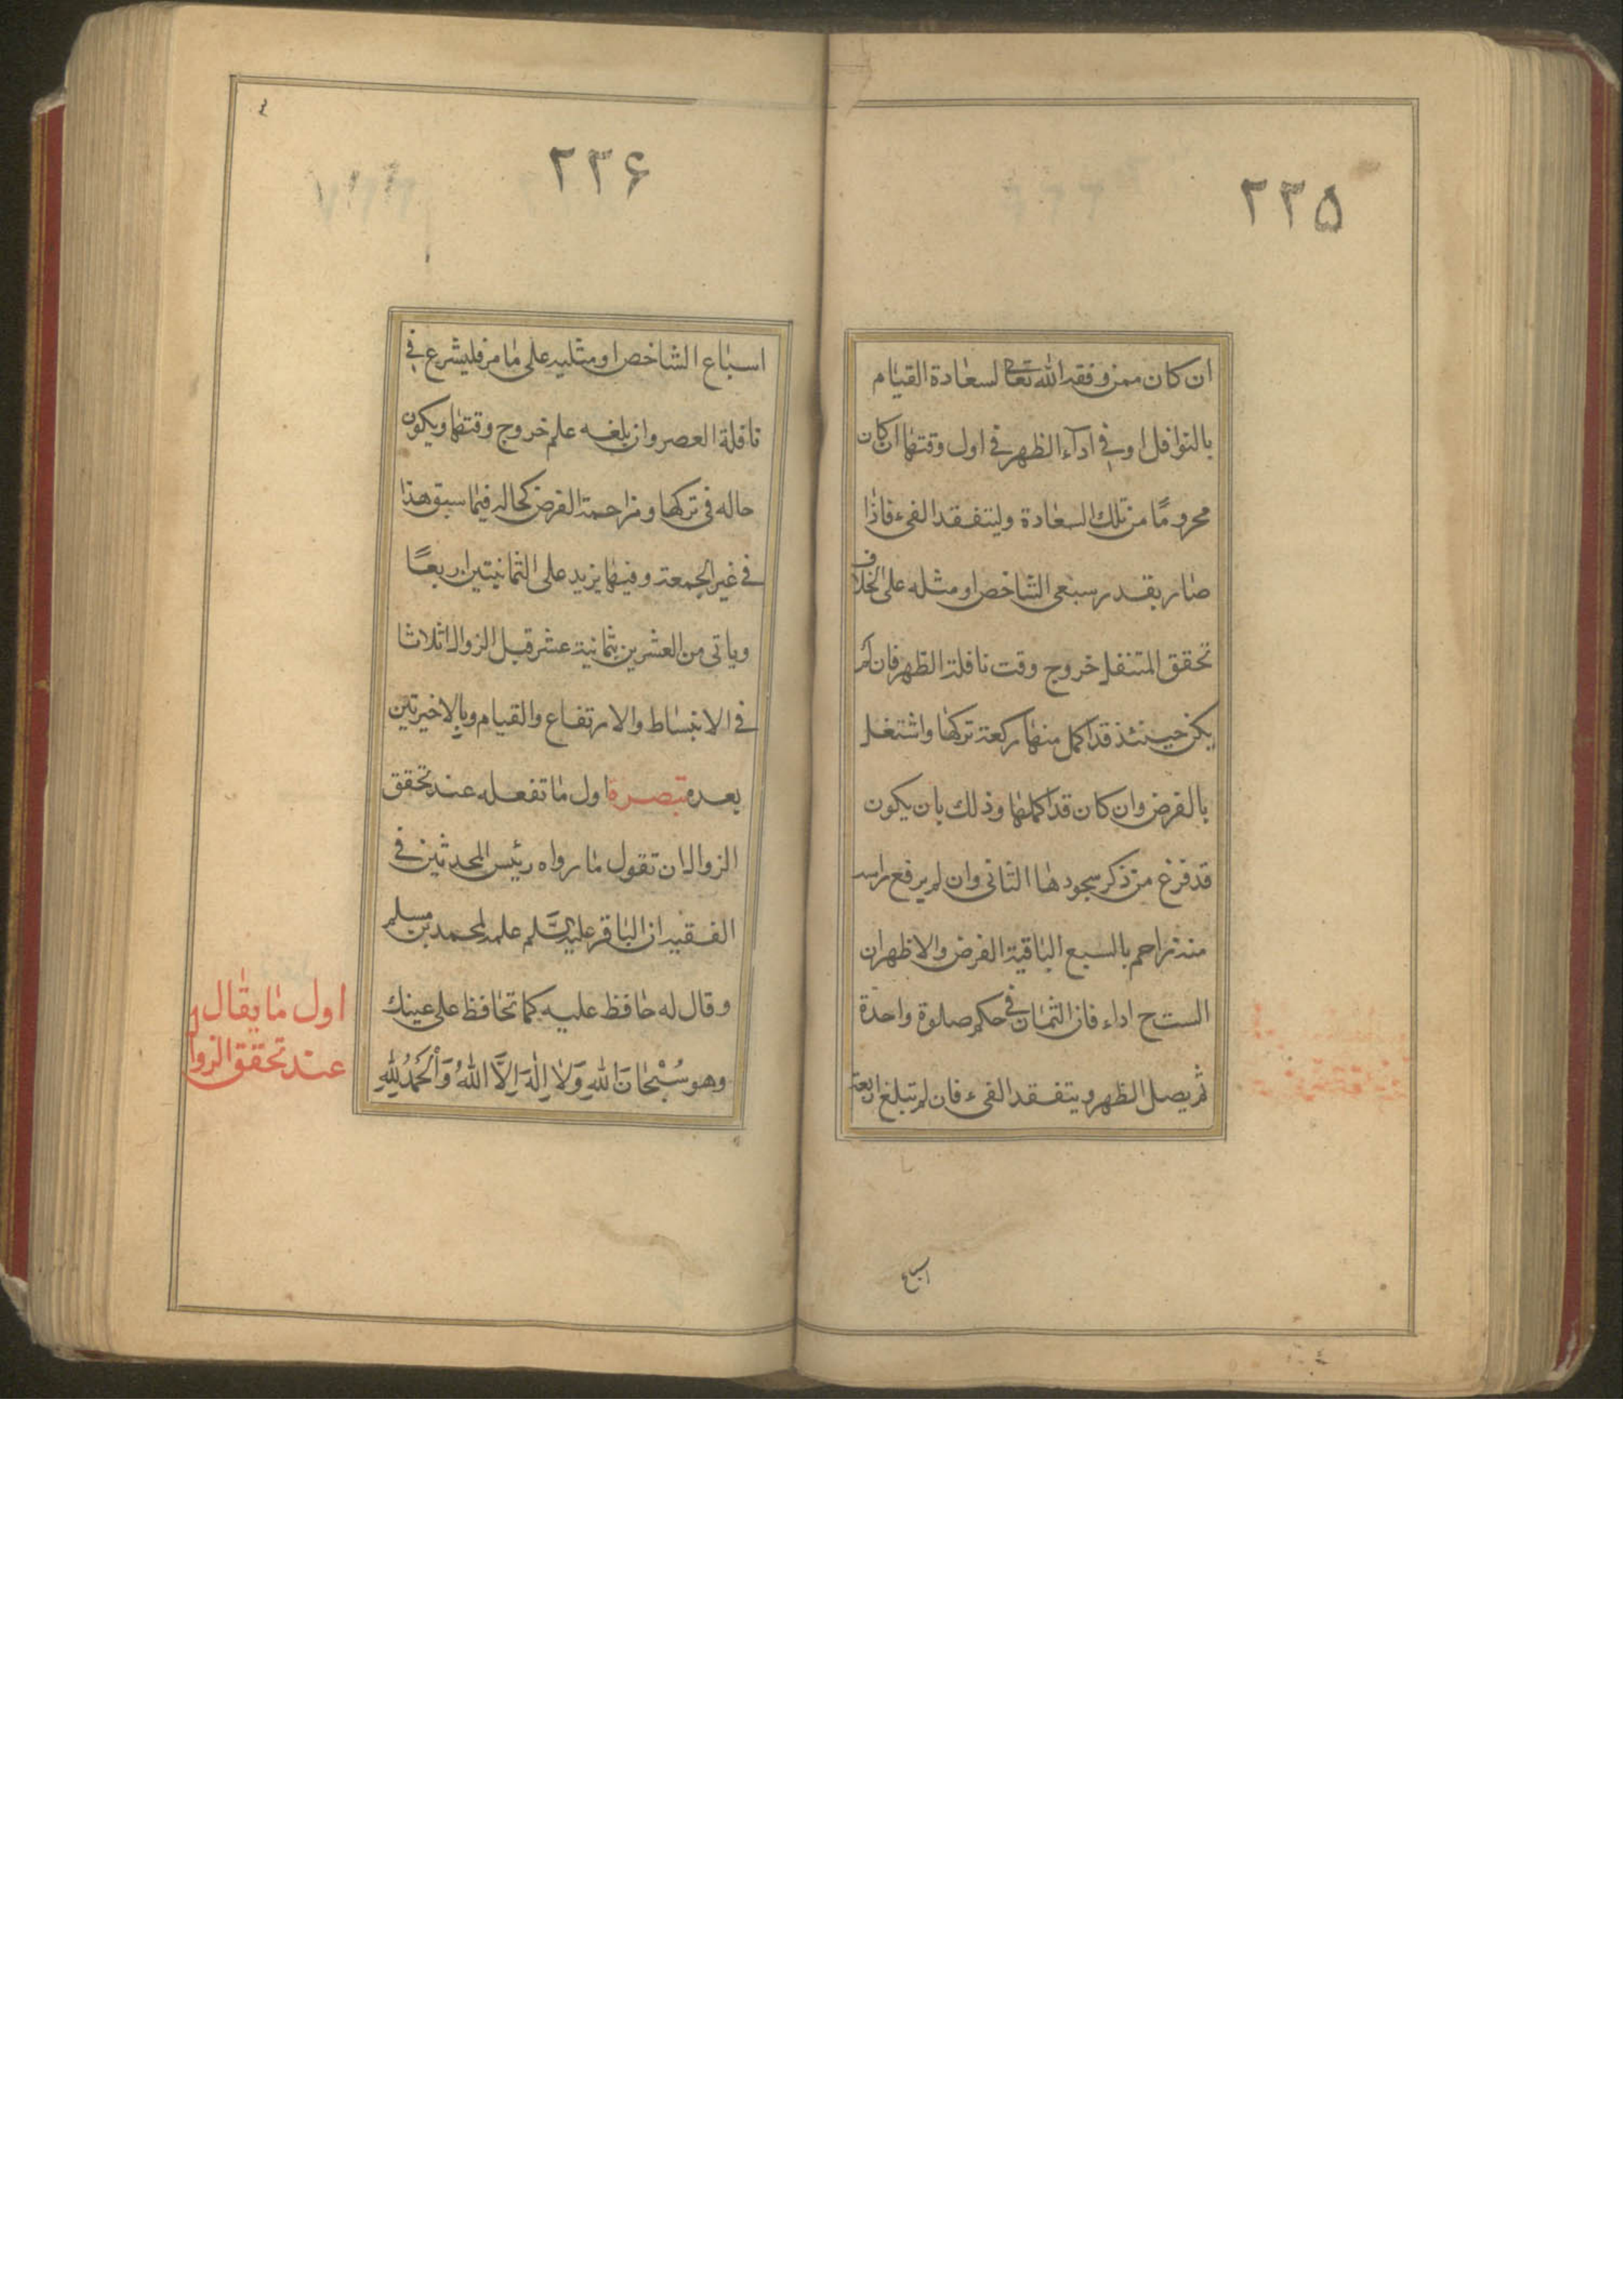 ٢٣۵
ان كان ممن وفقه الله تعالى لسعادة القيام
بالنوافل او فى ادآء الظهر فى اول وقتها ان كان
محرومًا من تلك السعادة وليتفقد الفىء فاذا
صار بقدر سبعى الشاخص او مثله على الخلاف
تحقق المتنفل خروج وقت نافلة الظهر فان لم
يكن حينئذ قد اكمل منها ركعة تركها واشتغل
بالفرض وان كان قد اكملها وذلك بان يكون
قد فرغ من ذكر سجودها الثانى وان لم يرفع راسه
منه زاحم بالسبع الباقية الفرض والاظهر ان
الست ح اداء فان الثمان فى حكم صلوة واحدة
ثم يصل الظهر ويتفقد الفىء فان لم تبلغ اربعة
اسباع
٢٣۶
اسباع الشاخص او مثليه على ما مر فليشرع فى
نافلة العصر وان بلغه علم خروج وقتها ويكون
حاله فى تركها ومزاحمة الفرض كحاله فيما سبق هذا
فى غير الجمعة وفيها يزيد على الثمانيتين اربعًا
وياتى من العشرين بثمانية عشر قبل الزوال اثلاثا
فى الانبساط والارتفاع والقيام وبالاخيرتين
بعده تبصرة اول ما تفعله عند تحقق
الزوال ان تقول ما رواه رئيس المحدثين فى
الفقيه ان الباقر عليه السَّلم علمه لمحمد بن مسلم
وقال له حافظ عليه كما تحافظ على عينك
وهو سُبْحَانَ اللهِ وَلَا اِلٰهَ اِلَّا اللهُ وَالْحَمْدُ لِلّهِ
اول ما يقال
عند تحقق الزوال